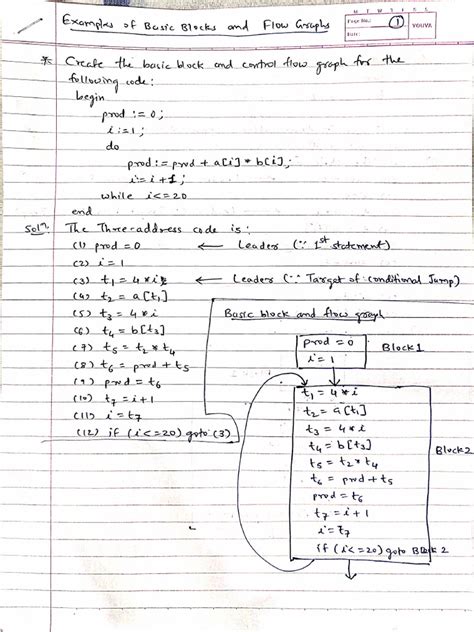 M T W T F S S
Page No.: 1
Date:
YOUVA
Examples of Basic Blocks and Flow Graphs
* Create the basic block and control flow graph for the
following code:
begin
prod := 0;
i:=1;
do
prod:= prod + a[i] * b[i];
i:= i + 1;
while i<=20
end
Solⁿ. The Three-address code is:
(1) prod = 0 ← Leader (∵ 1st statement)
(2) i = 1
(3) t₁ = 4 * i ← Leader (∵ Target of conditional Jump)
(4) t₂ = a[t₁]
(5) t₃ = 4 * i
(6) t₄ = b[t₃]
(7) t₅ = t₂ * t₄
(8) t₆ = prod + t₅
(9) prod = t₆
(10) t₇ = i+1
(11) i = t₇
(12) if (i<=20) goto (3)
Basic block and flow graph
prod = 0
i = 1
Block1
t₁ = 4 * i
t₂ = a[t₁]
t₃ = 4 * i
t₄ = b[t₃]
t₅ = t₂ * t₄
t₆ = prod + t₅
prod = t₆
t₇ = i + 1
i = t₇
if (i<=20) goto Block 2
Block2